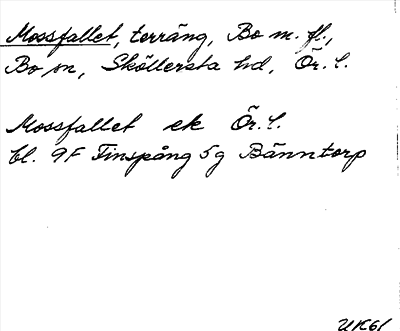 Mossfallet, terräng, Bo m. fl.,
Bo sn, Sköllersta hd, Ör. l.
Mossfallet ek Ör. l.
bl. 9F Finspång 5g Bänntorp
UK61